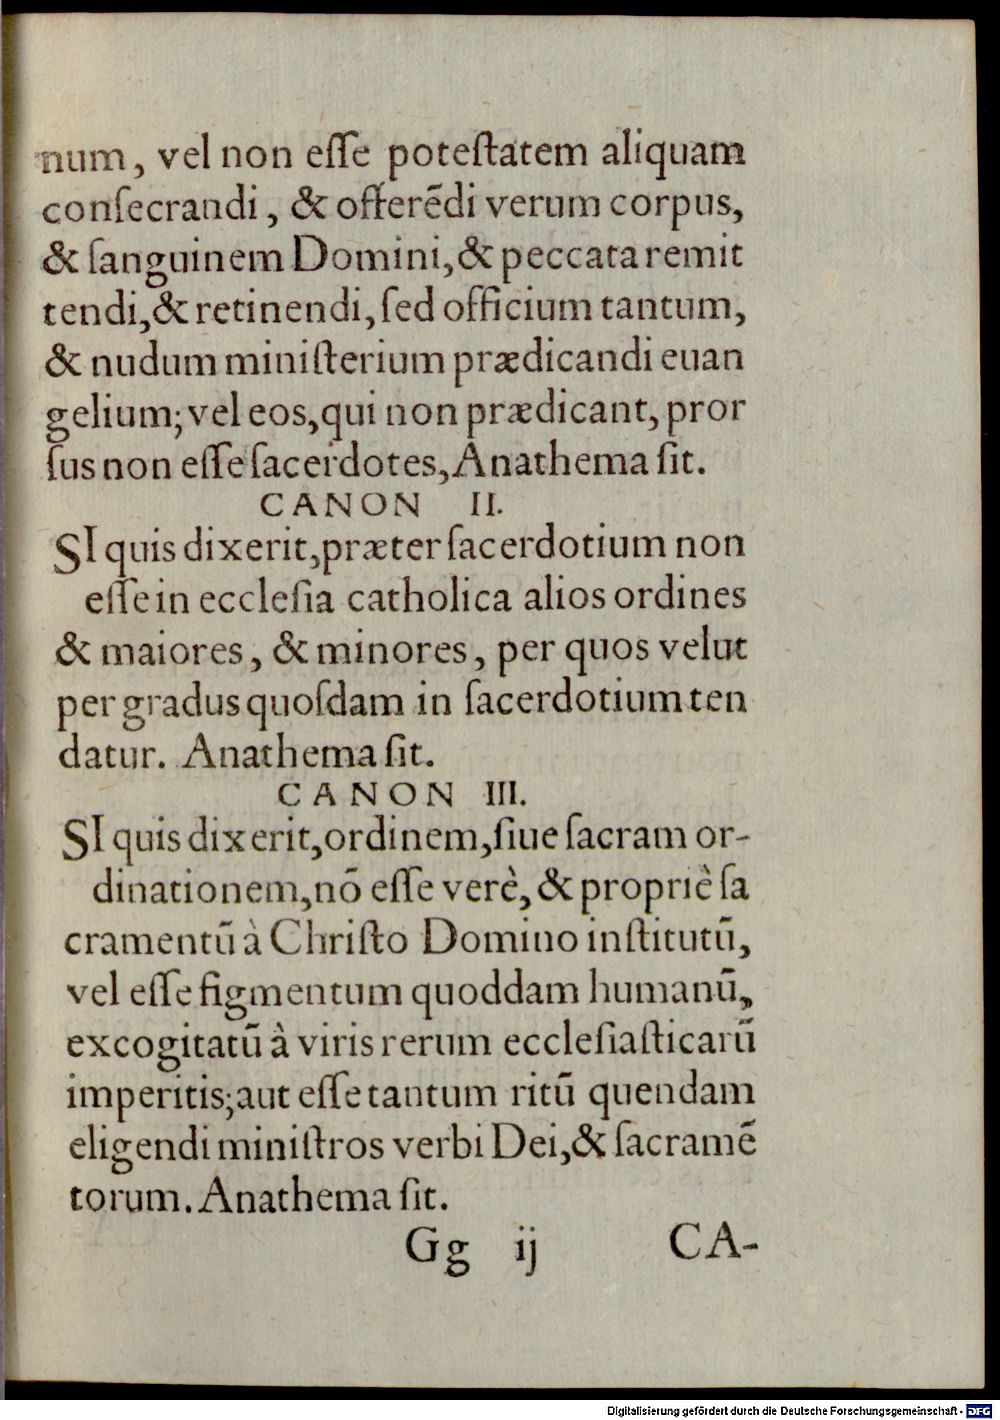 num, vel non eſſe poteſtatem aliquam
conſecrandi, & offerẽdi verum corpus,
& ſanguinem Domini, & peccata remit
tendi, & retinendi, ſed officium tantum,
& nudum miniſterium prædicandi euan
gelium; vel eos, qui non prædicant, pror
ſus non eſſe ſacerdotes, Anathema ſit.
CANON II.
SI quis dixerit, præter ſacerdotium non
eſſe in eccleſia catholica alios ordines
& maiores, & minores, per quos velut
per gradus quoſdam in ſacerdotium ten
datur. Anathema ſit.
CANON III.
SI quis dixerit, ordinem, ſiue ſacram or-
dinationem, nõ eſſe verè, & propriè ſa
cramentũ à Chriſto Domino inſtitutũ,
vel eſſe figmentum quoddam humanũ,
excogitatũ à viris rerum eccleſiaſticarũ
imperitis; aut eſſe tantum ritũ quendam
eligendi miniſtros verbi Dei, & ſacramẽ
torum. Anathema ſit.
Gg ij CA-
Digitalisierung gefördert durch die Deutsche Forschungsgemeinschaft - DFG